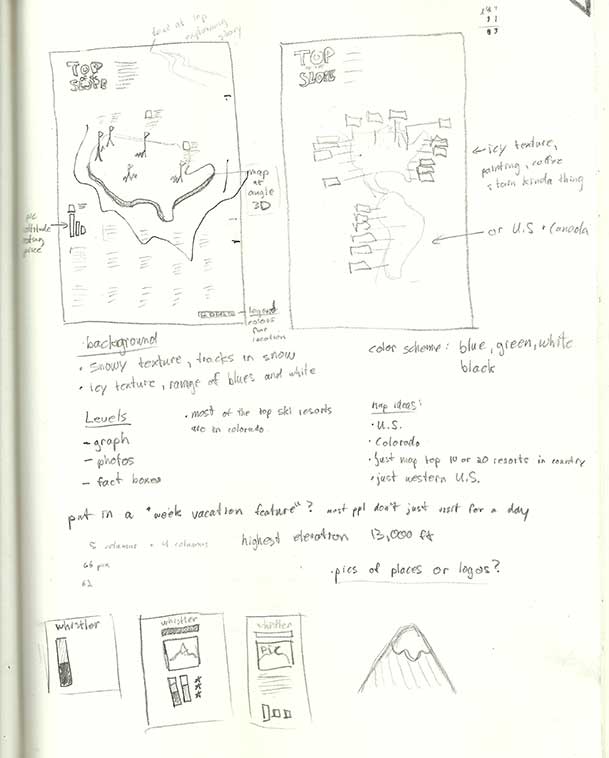 text at top
explaining
story
TOP
OF THE
SLOPE
map
at
angle
3D
pic
altitude
rating
price
legend
colors
for
location
TOP
OF THE
SLOPE
icy texture,
painting, coffee
stain kinda thing
or U.S + Canada
background
• snowy texture, tracks in snow
• icy texture, range of blues and white
color scheme: blue, green, white
black
Levels
– graph
– photos
– fact boxes
• most of the top ski resorts
are in colorado.
map ideas:
• U.S.
• Colorado
• just map top 10 or 20 resorts in country
• just western U.S.
put in a "week vacation feature"? most ppl don't just visit for a day
5 columns + 4 columns
highest elevation 13,000 ft
66 pix
62
• pics of places or logos?
whistler
whistler
whistler
PIC